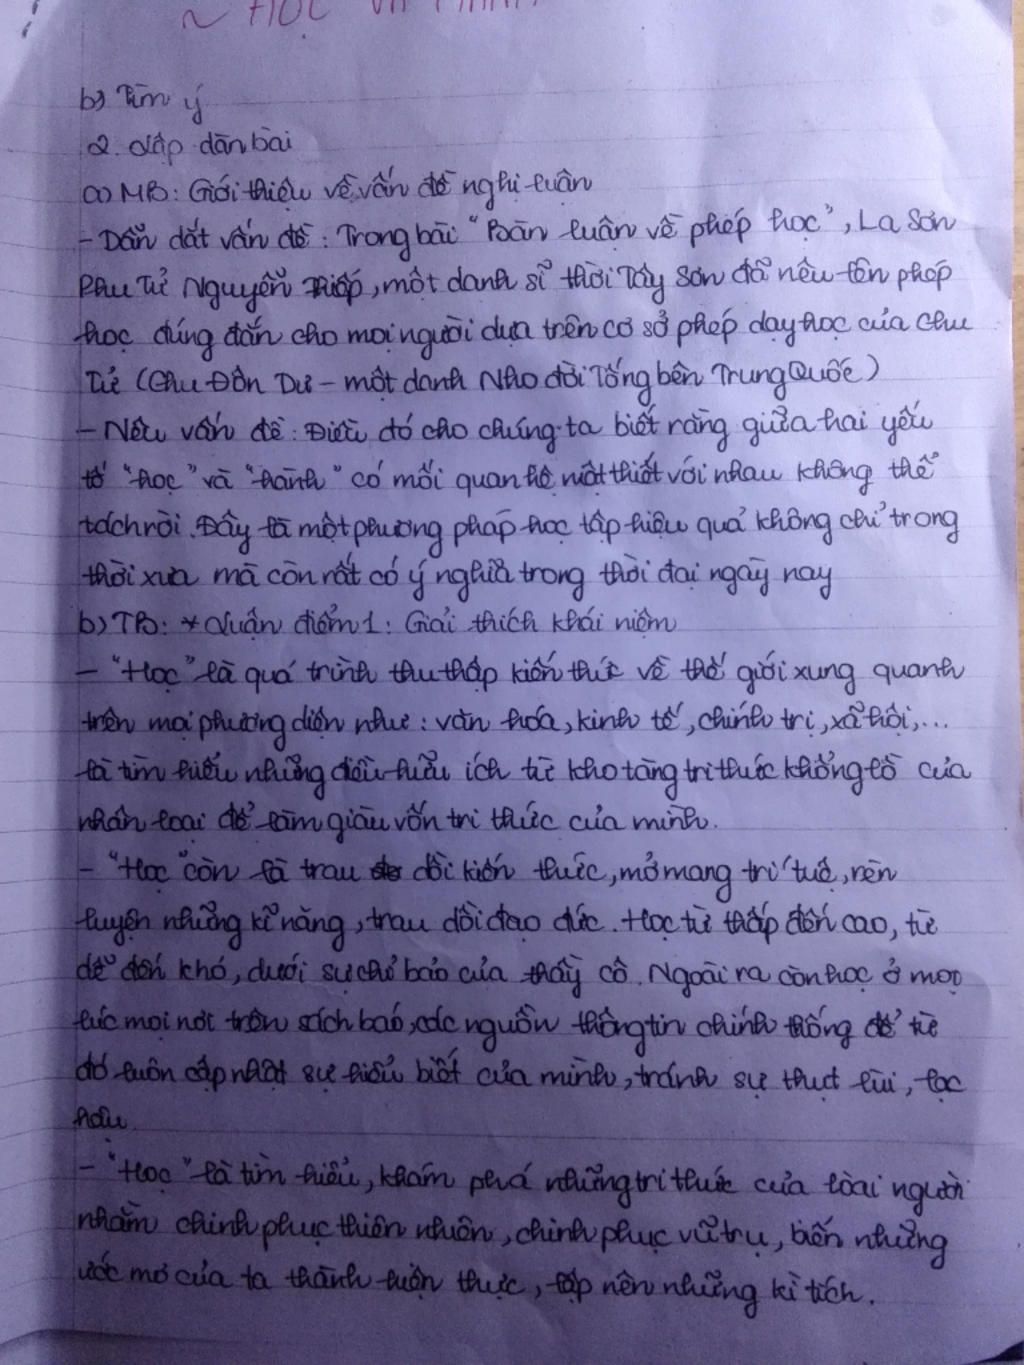 ~ HỌC VÀ HÀNH
b) Tìm ý
2. Lập dàn bài
a) MB: Giới thiệu về vấn đề nghị luận
- Dẫn dắt vấn đề: Trong bài "Bàn luận về phép học", La Sơn
Phu Tử Nguyễn Thiếp, một danh sĩ thời Tây Sơn đã nêu lên phép
học đúng đắn cho mọi người dựa trên cơ sở phép dạy học của Chu
Tử (Chu Đôn Di - một danh Nho đời Tống bên Trung Quốc)
- Nêu vấn đề: Điều đó cho chúng ta biết rằng giữa hai yếu
tố "học" và "hành" có mối quan hệ mật thiết với nhau không thể
tách rời. Đây là một phương pháp học tập hiệu quả không chỉ trong
thời xưa mà còn rất có ý nghĩa trong thời đại ngày nay
b) TB: * Luận điểm 1: Giải thích khái niệm
- "Học" là quá trình thu thập kiến thức về thế giới xung quanh
trên mọi phương diện như: văn hóa, kinh tế, chính trị, xã hội,...
là tìm hiểu những điều hữu ích từ kho tàng tri thức khổng lồ của
nhân loại để làm giàu vốn tri thức của mình.
- "Học" còn là trau dồi kiến thức, mở mang trí tuệ, rèn
luyện những kĩ năng, trau dồi đạo đức. Học từ thấp đến cao, từ
dễ đến khó, dưới sự chỉ bảo của thầy cô. Ngoài ra còn học ở mọi
lúc mọi nơi trên sách báo, các nguồn thông tin chính thống để từ
đó luôn cập nhật sự hiểu biết của mình, tránh sự thụt lùi, lạc
hậu.
- "Học" là tìm hiểu, khám phá những tri thức của loài người
nhằm chinh phục thiên nhiên, chinh phục vũ trụ, biến những
ước mơ của ta thành hiện thực, lập nên những kì tích.